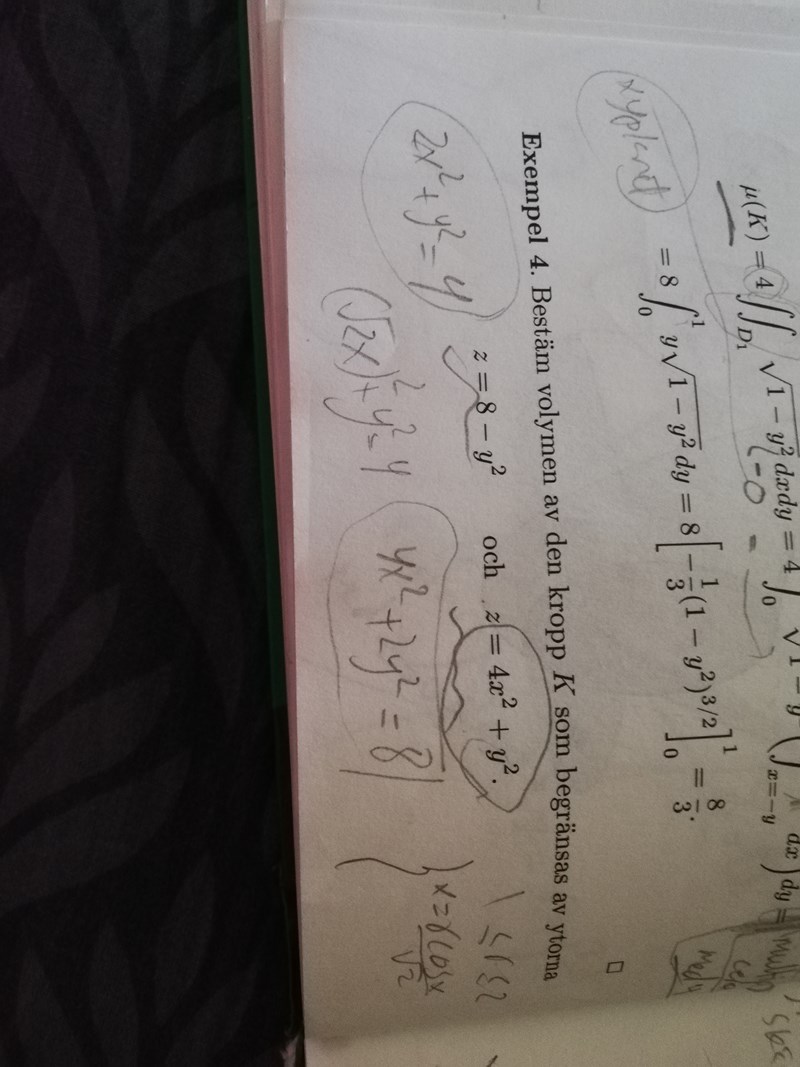 μ(K) = 4 ∬_{D₁} √(1 − y²) dxdy = 4 ∫₀ √(1 − y (∫_{x=−y} dx) dy =
(−0
xyplanet
= 8 ∫₀¹ y√(1 − y²) dy = 8 [−1/3 (1 − y²)^{3/2}]₀¹ = 8/3.
□
Exempel 4. Bestäm volymen av den kropp K som begränsas av ytorna
z = 8 − y² och z = 4x² + y².
2x² + y² = 4
(√2x)² + y² = 4
4x² + 2y² = 8
1 ≤ r ≤ 2
x = r cos x / √2